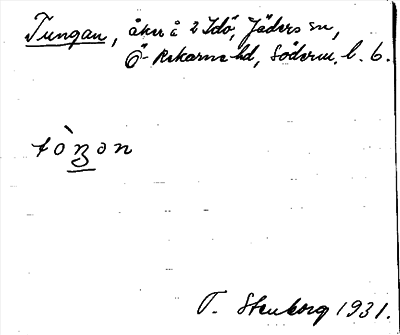 Tungan, åker å 2 Idö, Jäders sn,
Ö-Rekarne hd, Söderm. l. 6.
tòŋon
T. Stenborg 1931.